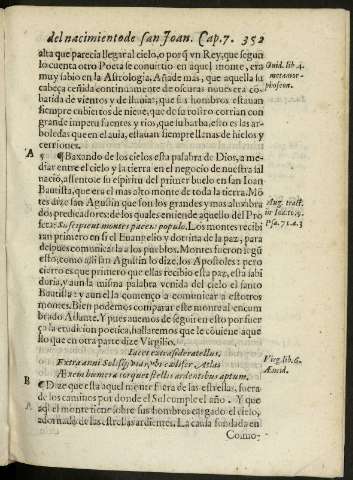 del nacimiento de san Ioan. Cap. 7. 352
alta que parecia llegar al cielo, o porq̃ vn Rey, que segun
lo cuenta otro Poeta se conuirtio en aquel monte, era
muy sabio en la Astrologia. Añade mas, que aquella su
cabeça ceñida continuamente de oscuras nuues era cõ-
batida de vientos y de lluuia; que sus hombros estauan
siempre cubiertos de nieue, que de su rostro corrian con
grande impetu fuentes y rios, que su barba, esto es las ar-
boledas que en el auia, estauan siempre llenas de hielos y
cerriones.
Ouid. lib. 4.
metamor-
phoseon.
A
¶ Baxando de los cielos esta palabra de Dios, a me-
diar entre el cielo y la tierra en el negocio de nuestra sal
uacio, assentò e su espiritu del primer buelo en san Ioan
Bautista, que era el mas alto monte de toda la tierra. Mõ
tes dize san Agustin que son los grandes y mas alumbra
dos predicadores: de los quales entiende aquello del Pro
feta: Suscipiant montes pacem populo. Los montes recibi
ran primero en si el Euangelio y dotrina de la paz, para
despues comunicarla a los pueblos. Montes fueron segũ
esto, como alli san Agustin lo dize, los Apostoles: pero
cierto es que primero que ellas recibio esta paz, esta sabi
duria, y aun la misma palabra venida del cielo el santo
Bautista: y aun el la començo a comunicar a estotros
montes. Bien podemos comparar este monte al encum
brado Atlante. Y pues auemos de seguir en esto por fuer
ça la erudicion poetica, hallaremos que le cõuiene aque
llo que en otra parte dize Virgilio.
Aug. tract.
in Ioa. to. 9.
Psa. 71. a. 3
Iacet extra sidera tellus,
Extra anni Solisq; vias, vbi cælifer Atlas
Axem humero torquet stellis ardentibus aptum.
Virg. lib. 6.
Æneid.
B
¶ Dize que esta aquel monte fuera de las estrellas, fuera
de los caminos por donde el Sol cumple el año. Y que
aq̃l el monte tiene sobre sus hombros cargado el cielo,
adornado de las estrellas ardientes. La causa fundada en
Como,